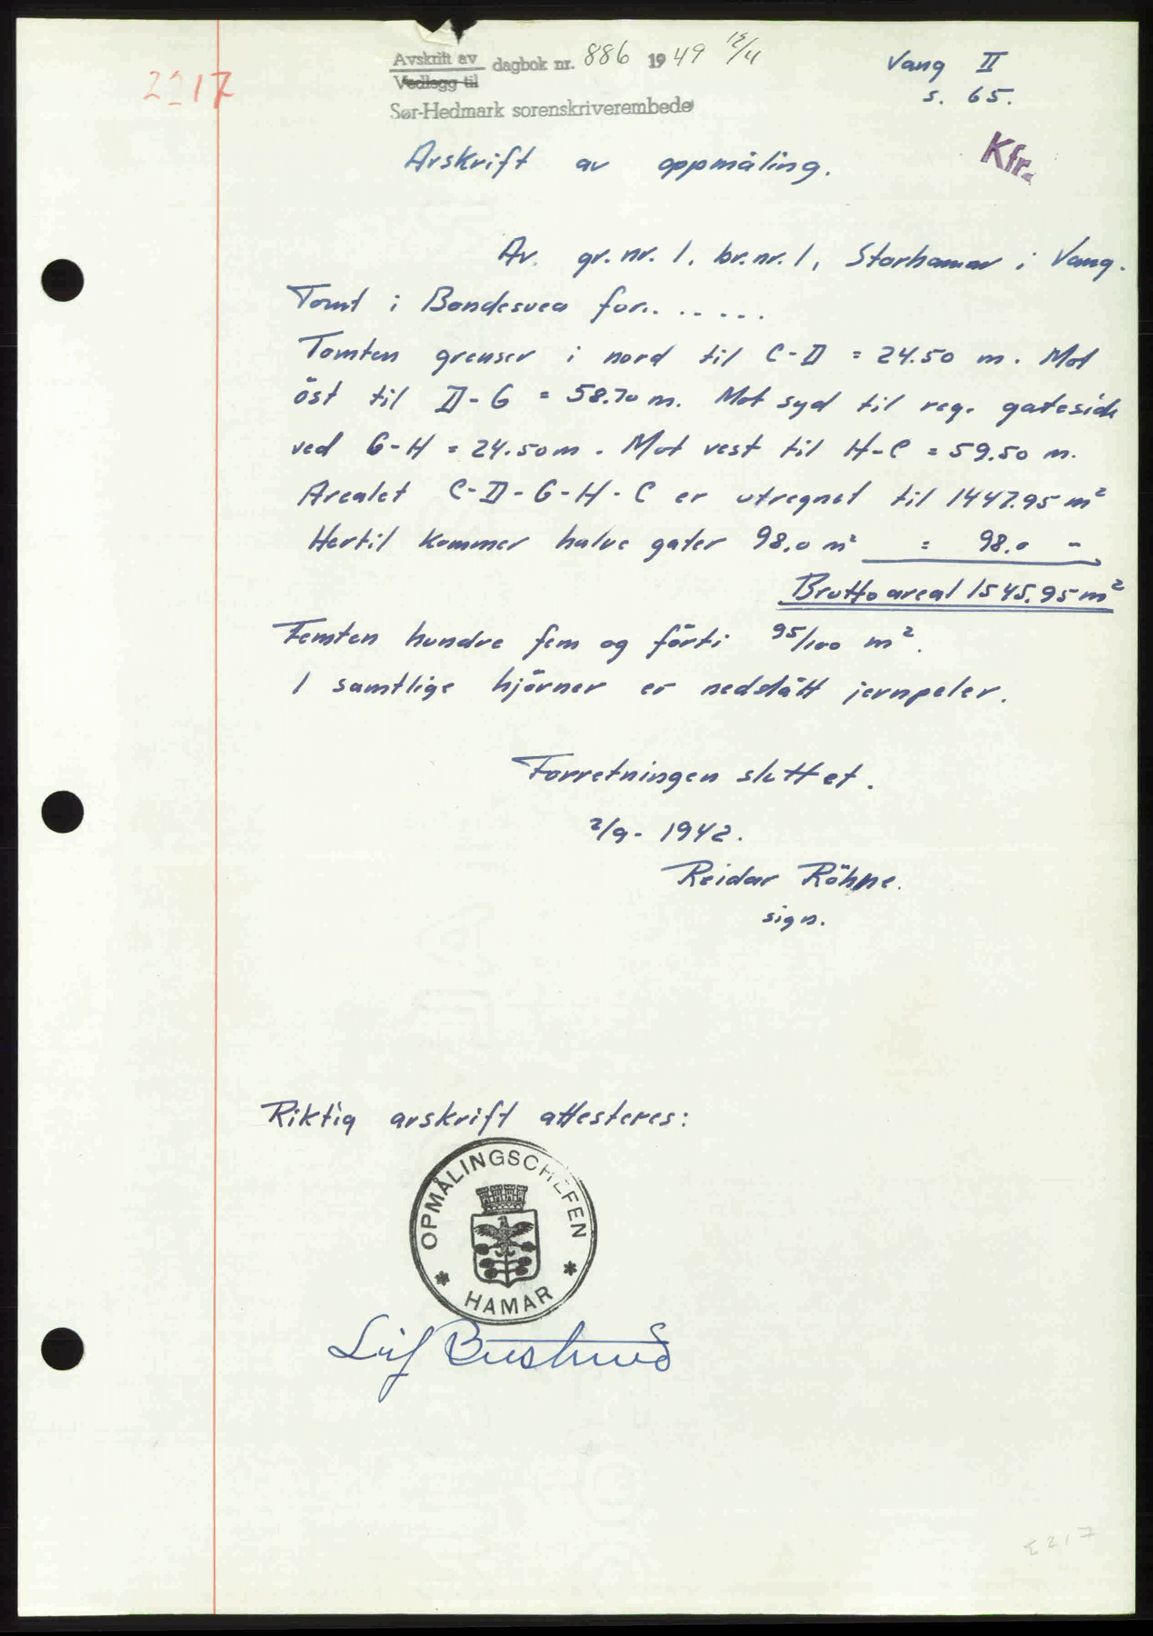 2217
Avskrift av dagbok nr. 886 1949 12/4
Vedlegg til
Sør-Hedmark sorenskriverembede
Vang II
s. 65.
Kfr.
Avskrift av oppmåling.
Av. gr.nr. 1, br.nr. 1, Storhamar i Vang.
Tomt i Bondesvea for.......
Tomten grenser i nord til C-D = 24.50 m. Mot
öst til D-G = 58.70 m. Mot syd til reg. gateside
ved G-H = 24.50 m. Mot vest til H-C = 59.50 m.
Arealet C-D-G-H-C er utregnet til 1447.95 m²
Hertil kommer halve gater 98.0 m² = 98.0 -
Brutto areal 1545.95 m²
Femten hundre fem og förti 95/100 m².
I samtlige hjörner er nedslått jernpeler.
Forretningen sluttet.
2/9- 1942.
Reidar Röhne.
sign.
Riktig avskrift attesteres:
OPMÅLINGSCHEFEN
* HAMAR *
Leif
2217